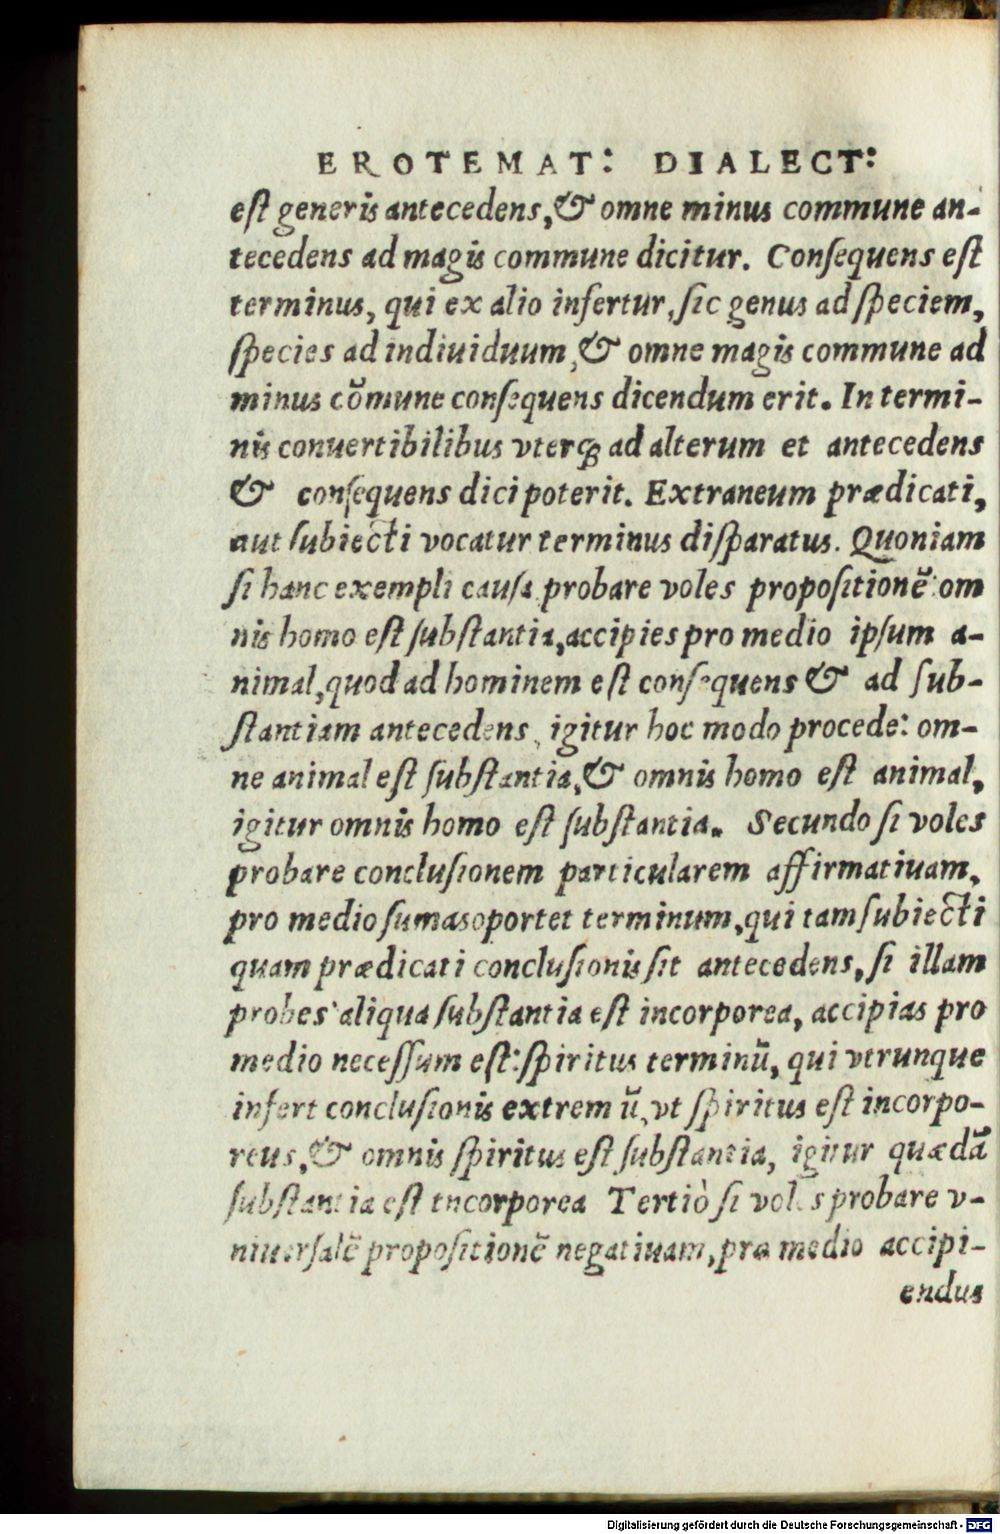 EROTEMAT: DIALECT:
est generis antecedens, & omne minus commune an-
tecedens ad magis commune dicitur. Consequens est
terminus, qui ex alio infertur, sic genus ad speciem,
species ad indiuiduum, & omne magis commune ad
minus cõmune consequens dicendum erit. In termi-
nis conuertibilibus vterq; ad alterum et antecedens
& consequens dici poterit. Extraneum prædicati,
aut subiecti vocatur terminus disparatus. Quoniam
si hanc exempli causa probare voles propositionē: om
nis homo est substantia, accipies pro medio ipsum a-
nimal, quod ad hominem est consequens & ad sub-
stantiam antecedens, igitur hoc modo procede: om-
ne animal est substantia, & omnis homo est animal,
igitur omnis homo est substantia. Secundo si voles
probare conclusionem particularem affirmatiuam,
pro medio sumas oportet terminum, qui tam subiecti
quam prædicati conclusionis sit antecedens, si illam
probes aliqua substantia est incorporea, accipias pro
medio necessum est: spiritus terminū, qui vtrunque
infert conclusionis extremū, vt spiritus est incorpo-
reus, & omnis spiritus est substantia, igitur quædā
substantia est incorporea Tertiò si voles probare v-
niuersalē propositionē negatiuam, pra medio accipi-
endus
Digitalisierung gefördert durch die Deutsche Forschungsgemeinschaft - DFG